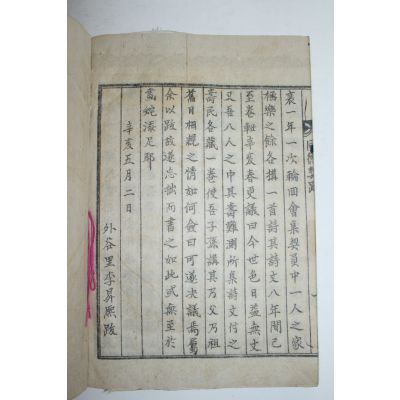 裏一年一次輪回會集契員中一人之家
極樂之餘各構一首詩其詩文八年間已
至卷軸辛亥春更議曰今世色日益無文
且吾八人之中其壽難測所集詩文付之
壽民各藏一卷使吾子孫講其乃父乃祖
舊日相親之情如何僉曰可遂决議焉屬
余以跋故遂忘拙而書之如此或無至於
畵蛇添足耶
辛亥五月二日
外谷里李昇熙跋